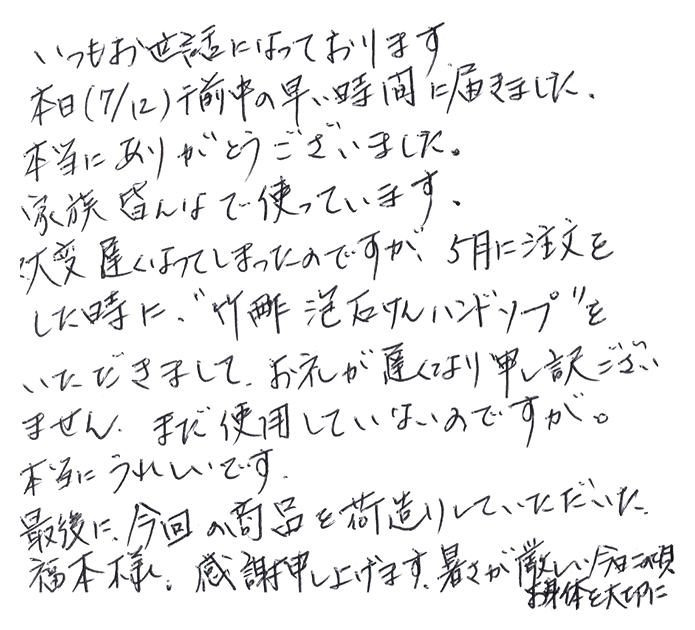 いつもお世話になっております
本日(7/12)午前中の早い時間に届きました.
本当にありがとうございました。
家族皆んなで使っています.
大変遅くなってしまったのですが、5月に注文を
した時に、"竹酢泡石けんハンドソープ"を
いただきまして、お礼が遅くなり申し訳ござい
ません. まだ使用していないのですが。
本当にうれしいです.
最後に、今回の商品を荷造りしていただいた
福本様。感謝申し上げます. 暑さが厳しい今日この頃
お身体を大切に